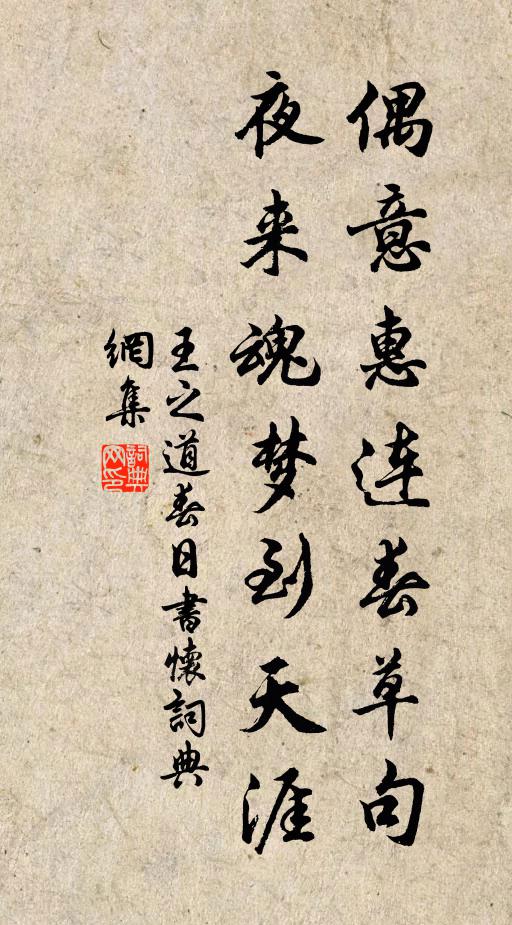 偶意惠连春草句
夜来魂梦到天涯
王之道春日書懷詞典
網集
詞典网印